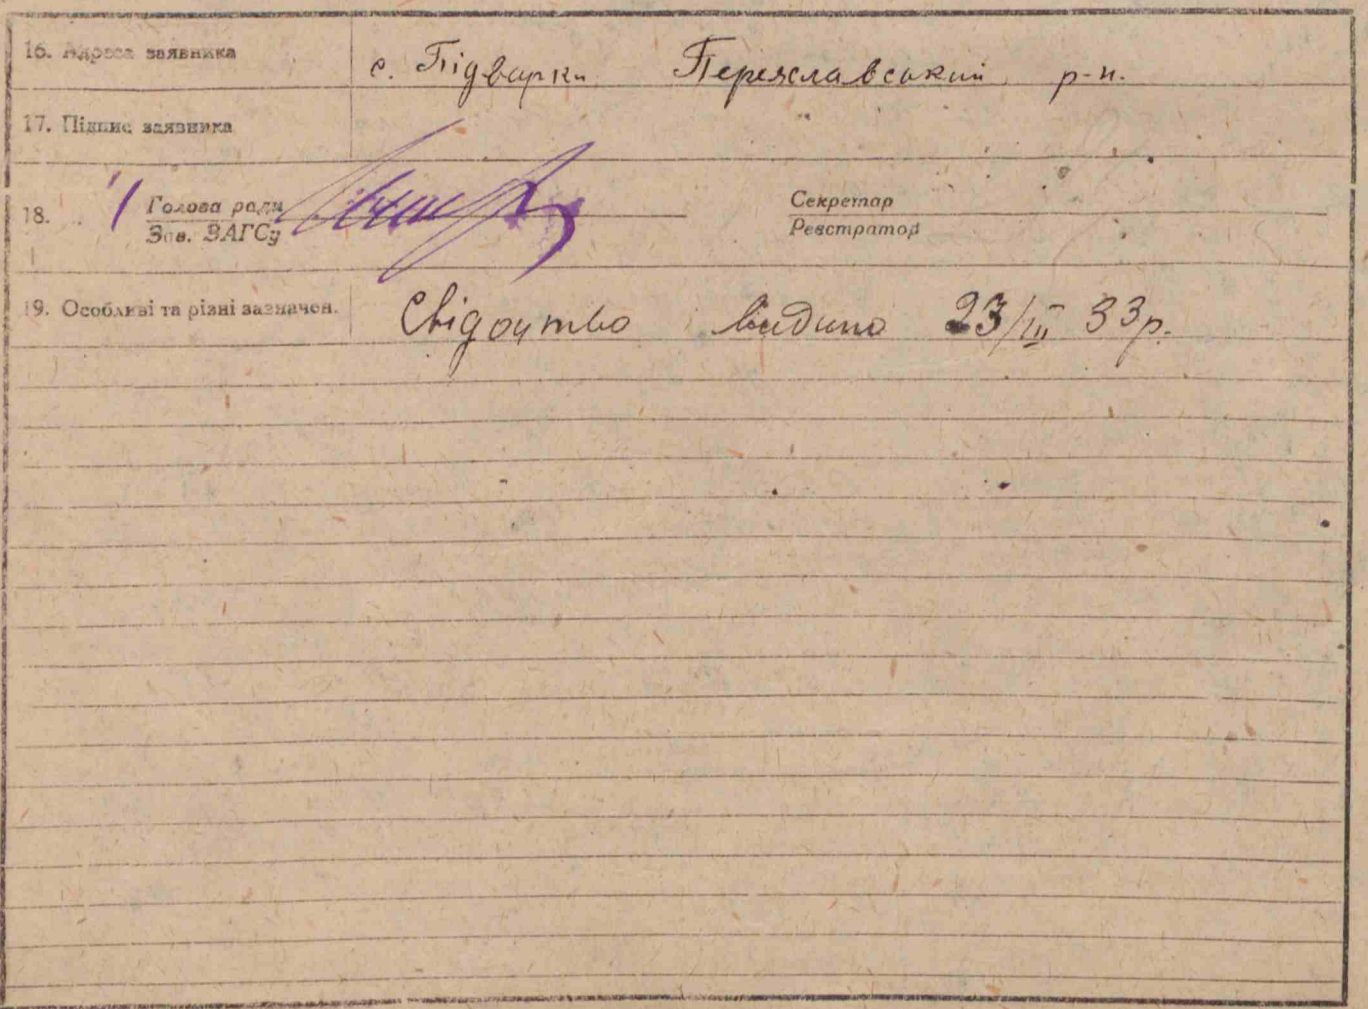 16. Адреса заявника с. Підварки Переяславський р-н.
17. Підпис заявника
18. Голова ради Секретар
Зав. ЗАГСу Реєстратор
19. Особливі та різні зазначен. Свідоцтво видано 23/III 33р.